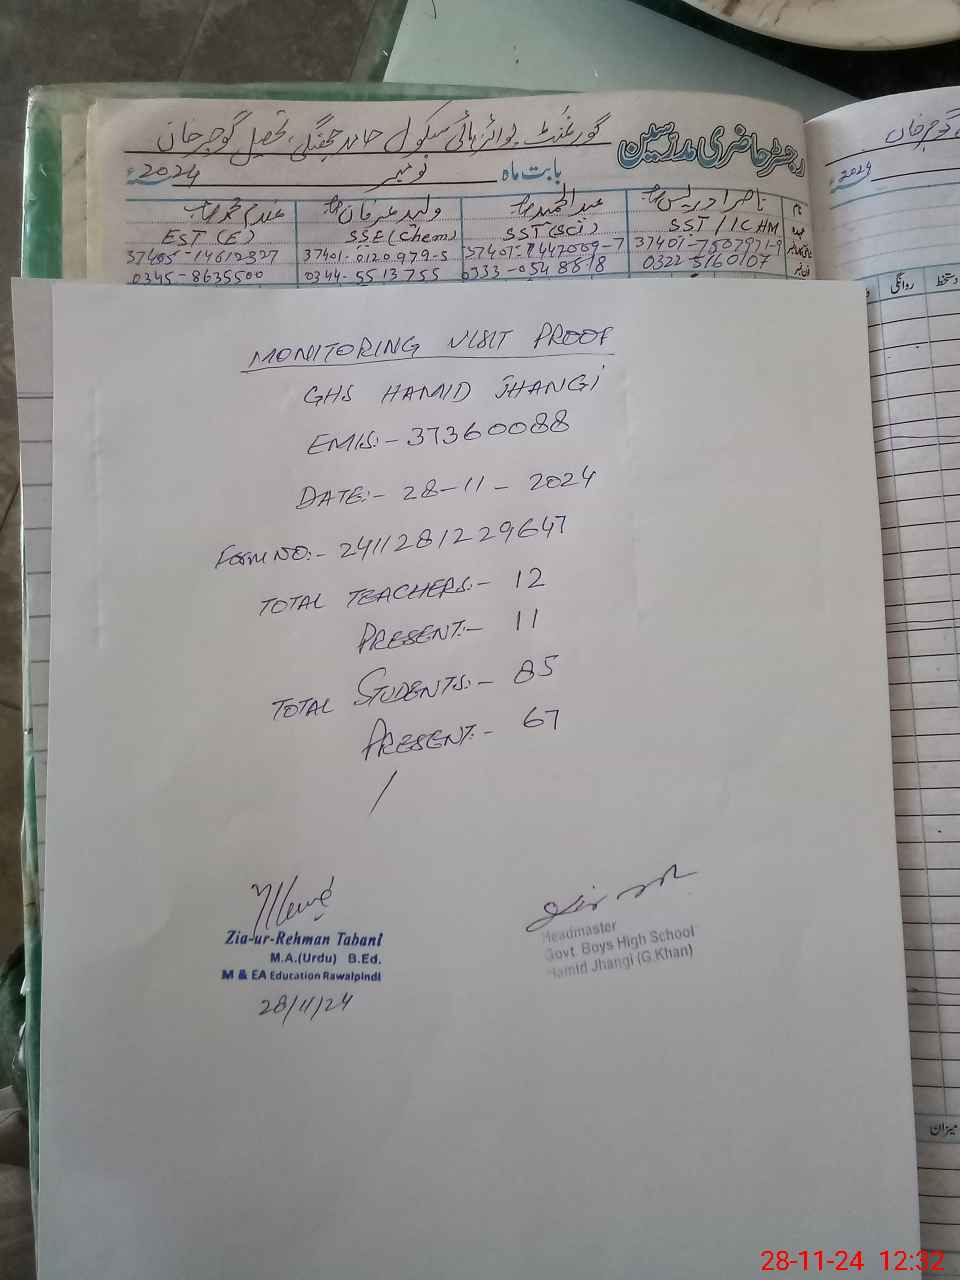 گورنمنٹ بوائز ہائی سکول حامد جھنگی، تحصیل گوجرخان
رجسٹر حاضری مدرسین
بابت ماہ نومبر 2024ء
ناصر ادریس صاحب
SST/ICHM
37401-7507971-9
0322-5160107
عبدالحمید صاحب
SST (Sci)
0333-0548818
ولید عرفان صاحب
SSE (Chem)
37401-0120979-5
0344-5513755
EST (E)
0345-8635500
2024ء
روانگی
دستخط
MONITORING VISIT PROOF
GHS HAMID JHANGI
EMIS:- 37360088
DATE:- 28-11-2024
Form NO:- 2411281229647
TOTAL TEACHERS:- 12
PRESENT:- 11
TOTAL STUDENTS:- 85
PRESENT:- 67
Zia-ur-Rehman Tabani
M.A.(Urdu) B.Ed.
M & EA Education Rawalpindi
28/11/24
Headmaster
Govt. Boys High School
Hamid Jhangi (G.Khan)
میزان
28-11-24 12:32